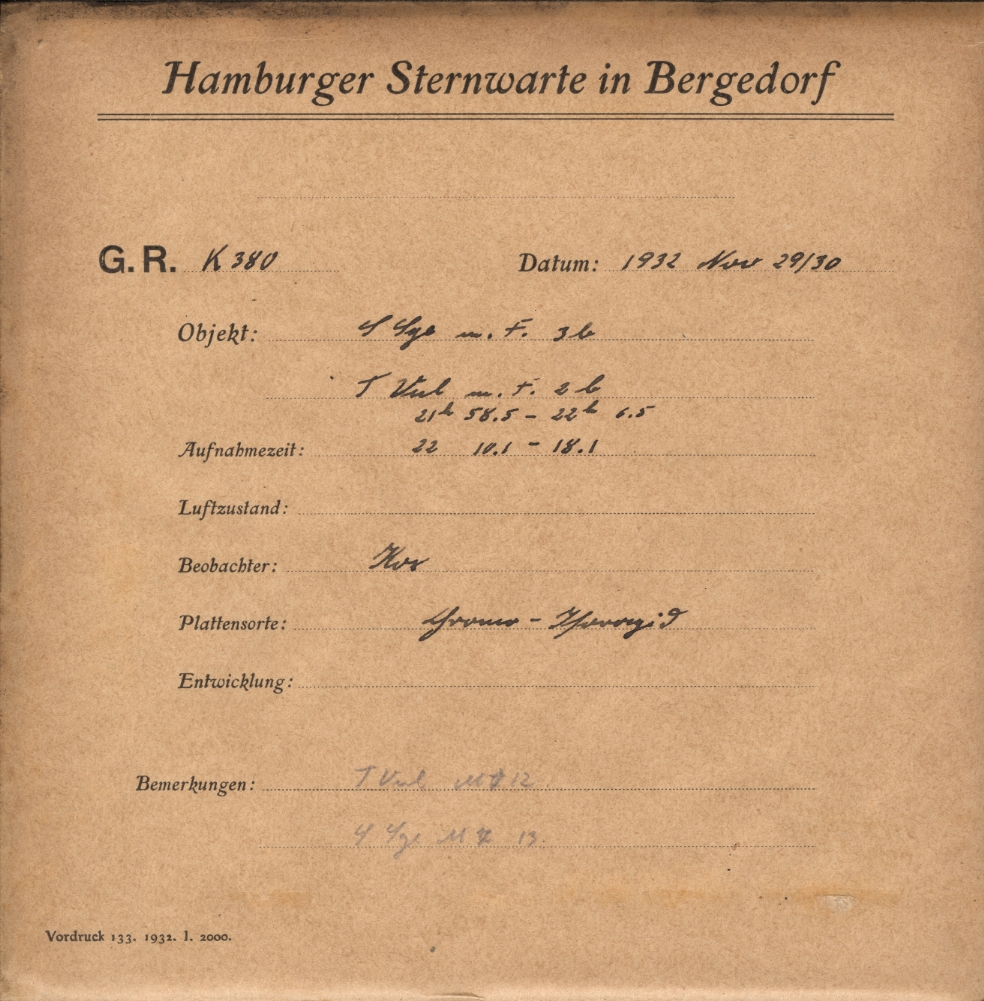 Hamburger Sternwarte in Bergedorf
G. R. K 380 Datum: 1932 Nov 29/30
Objekt: S Sge m. F. 3 b
T Vul m. F. 2 b
21h 58.5 - 22h 6.5
Aufnahmezeit: 22 10.1 - 18.1
Luftzustand:
Beobachter:
Plattensorte: Chromo -
Entwicklung:
Bemerkungen: T Vul 12
S Sge M 13.
Vordruck 133. 1932. I. 2000.